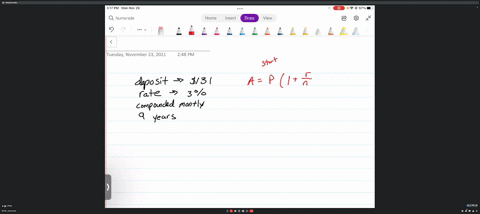 Numerade
Home
Insert
Draw
View
Tuesday, November 23, 2021 2:48 PM
deposit → $131
rate → 3%
compounded montly
9 years
start
A = P ( 1 + r/n